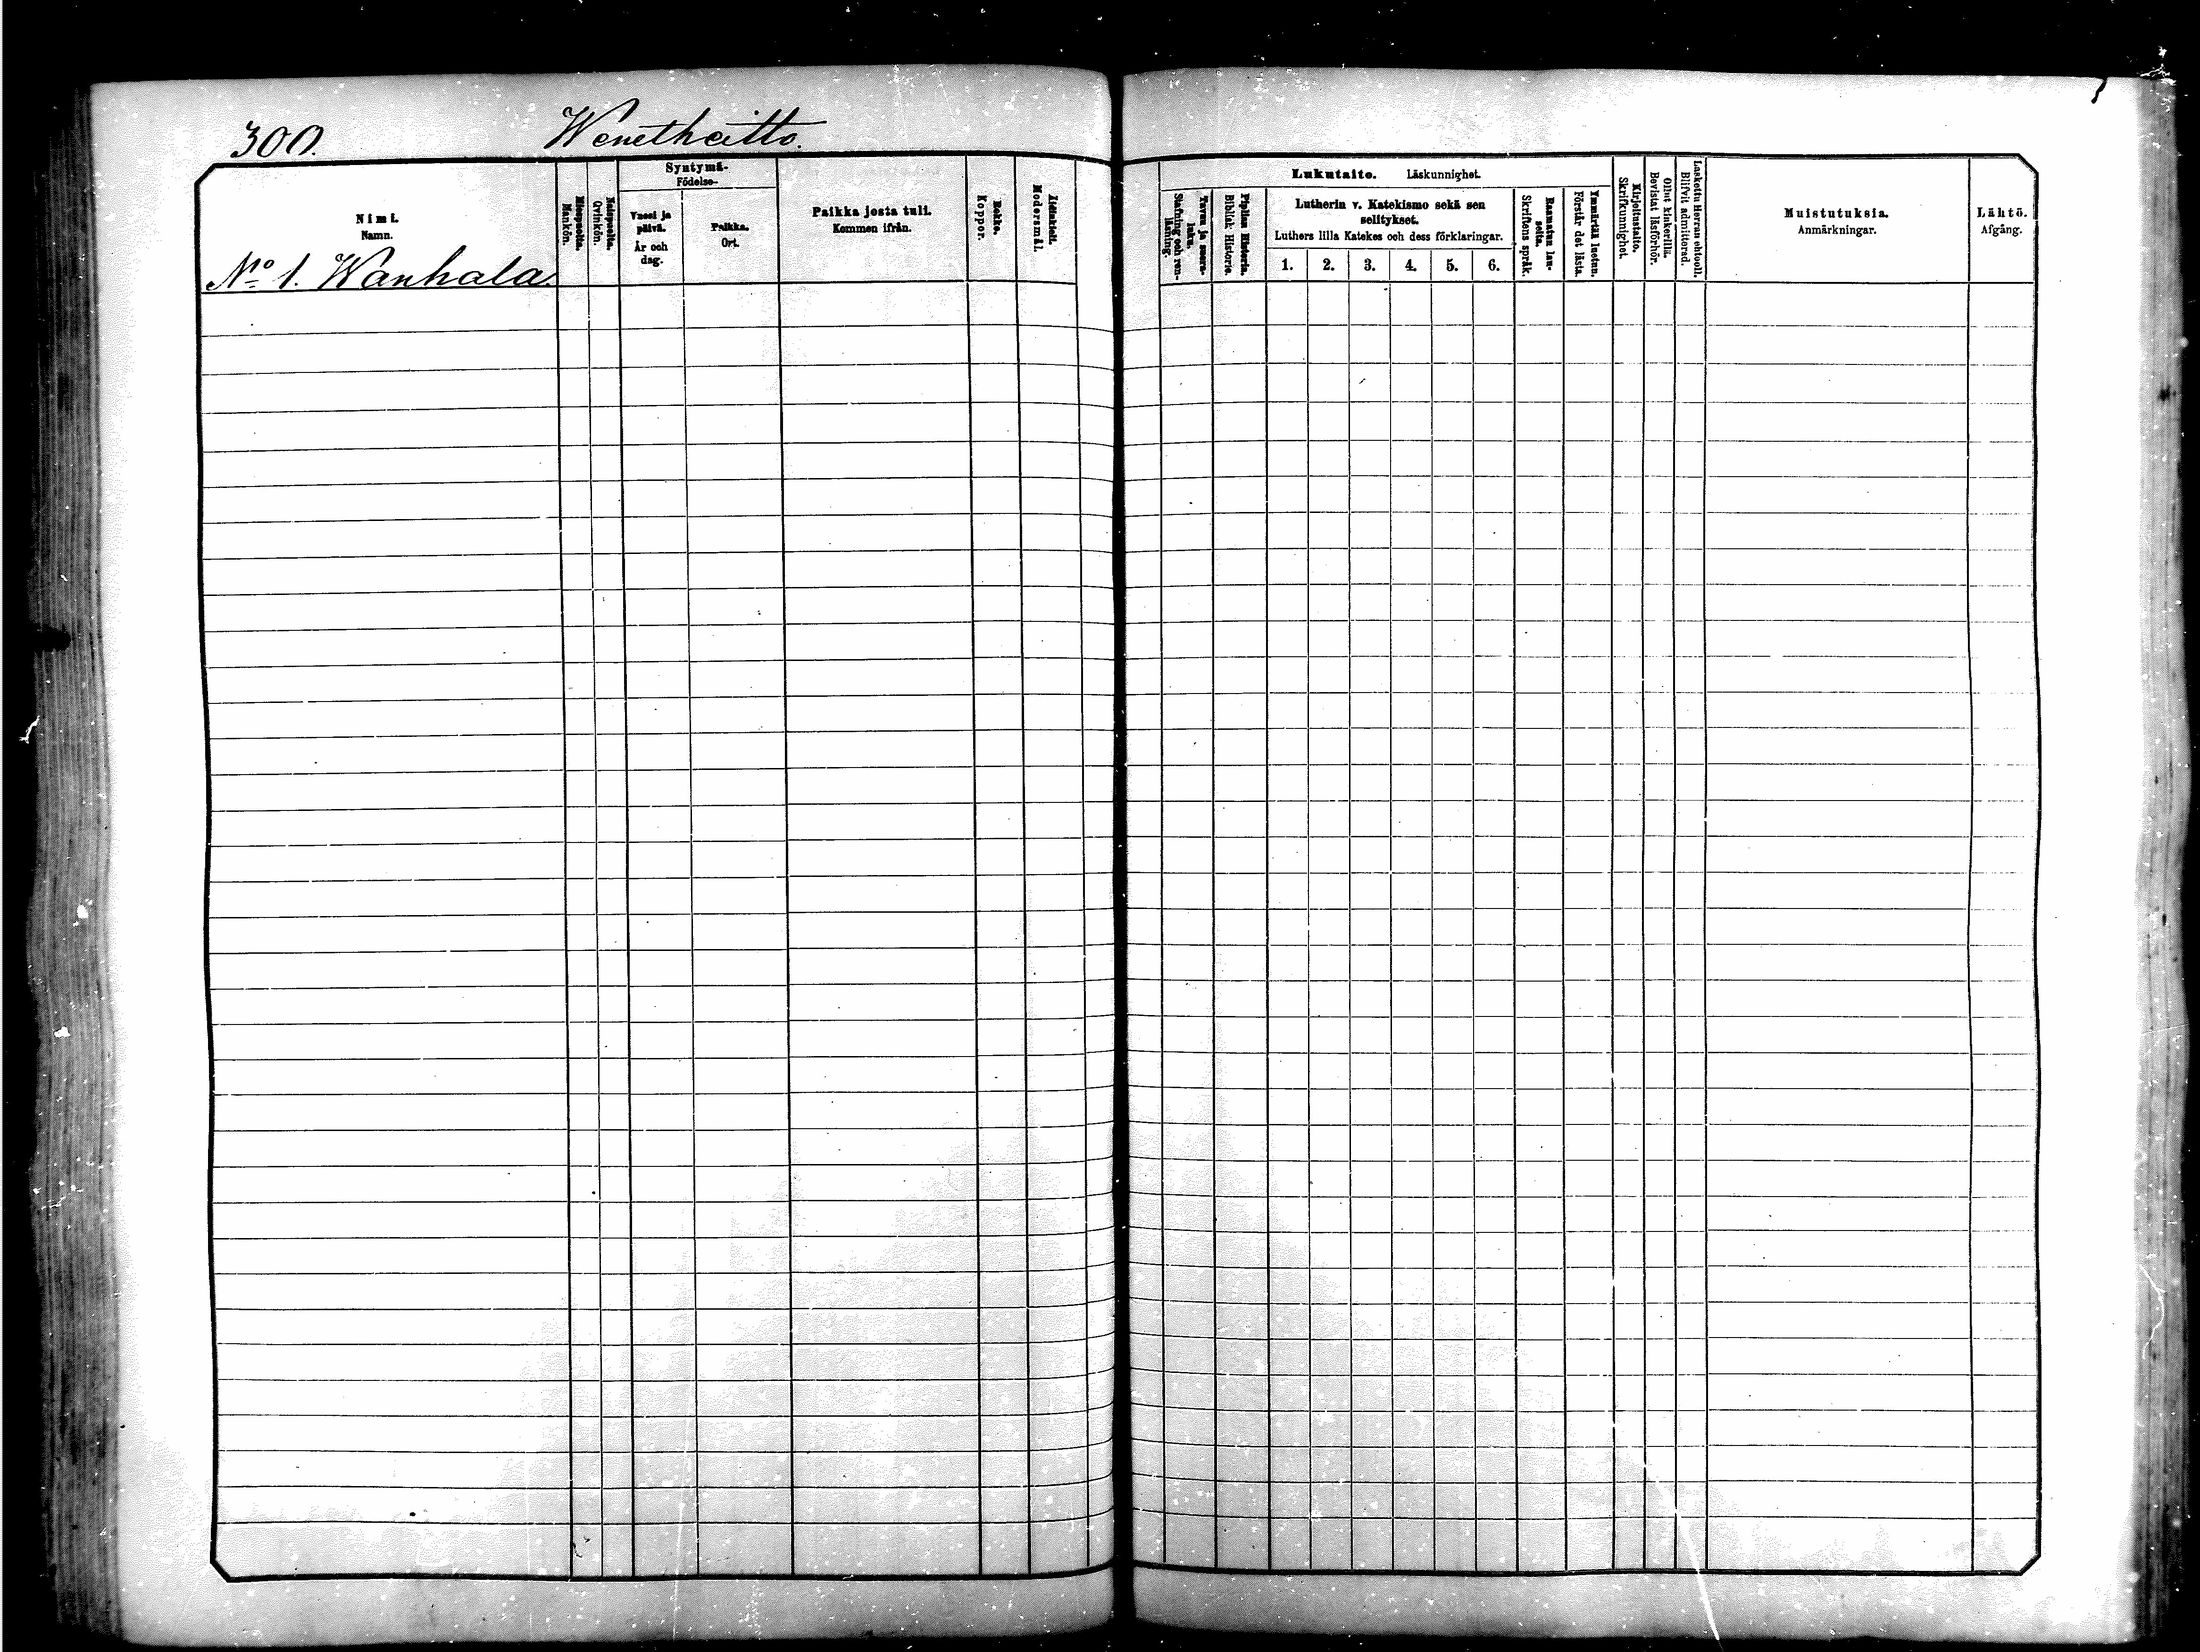 300.
Wenetheitto.
Nimi.
Namn.
Miespuolta.
Mankön.
Naispuolta.
Qvinkön.
Syntymä-
Födelse-
Vuosi ja
päivä.
År och
dag.
Paikka.
Ort.
Paikka josta tuli.
Kommen ifrån.
Rokko.
Koppor.
Äidinkieli.
Modersmål.
No 1. Wanhala.
Lukutaito. Läskunnighet.
Tavuu ja suora-
luku.
Stafning och ren-
läsning.
Piplian Historia.
Biblisk Historie.
Lutherin v. Katekismo sekä sen
selitykset.
Luthers lilla Katekes och dess förklaringar.
1. 2. 3. 4. 5. 6.
Raamatun lau-
seita.
Skriftens språk.
Ymmärtää luetun.
Förstår det lästa.
Kirjoitustaito.
Skrifkunnighet.
Ollut kinkerillä.
Bevistat läsförhör.
Laskettu Herran ehtooll.
Blifvit admitterad.
Muistutuksia.
Anmärkningar.
Lähtö.
Afgång.